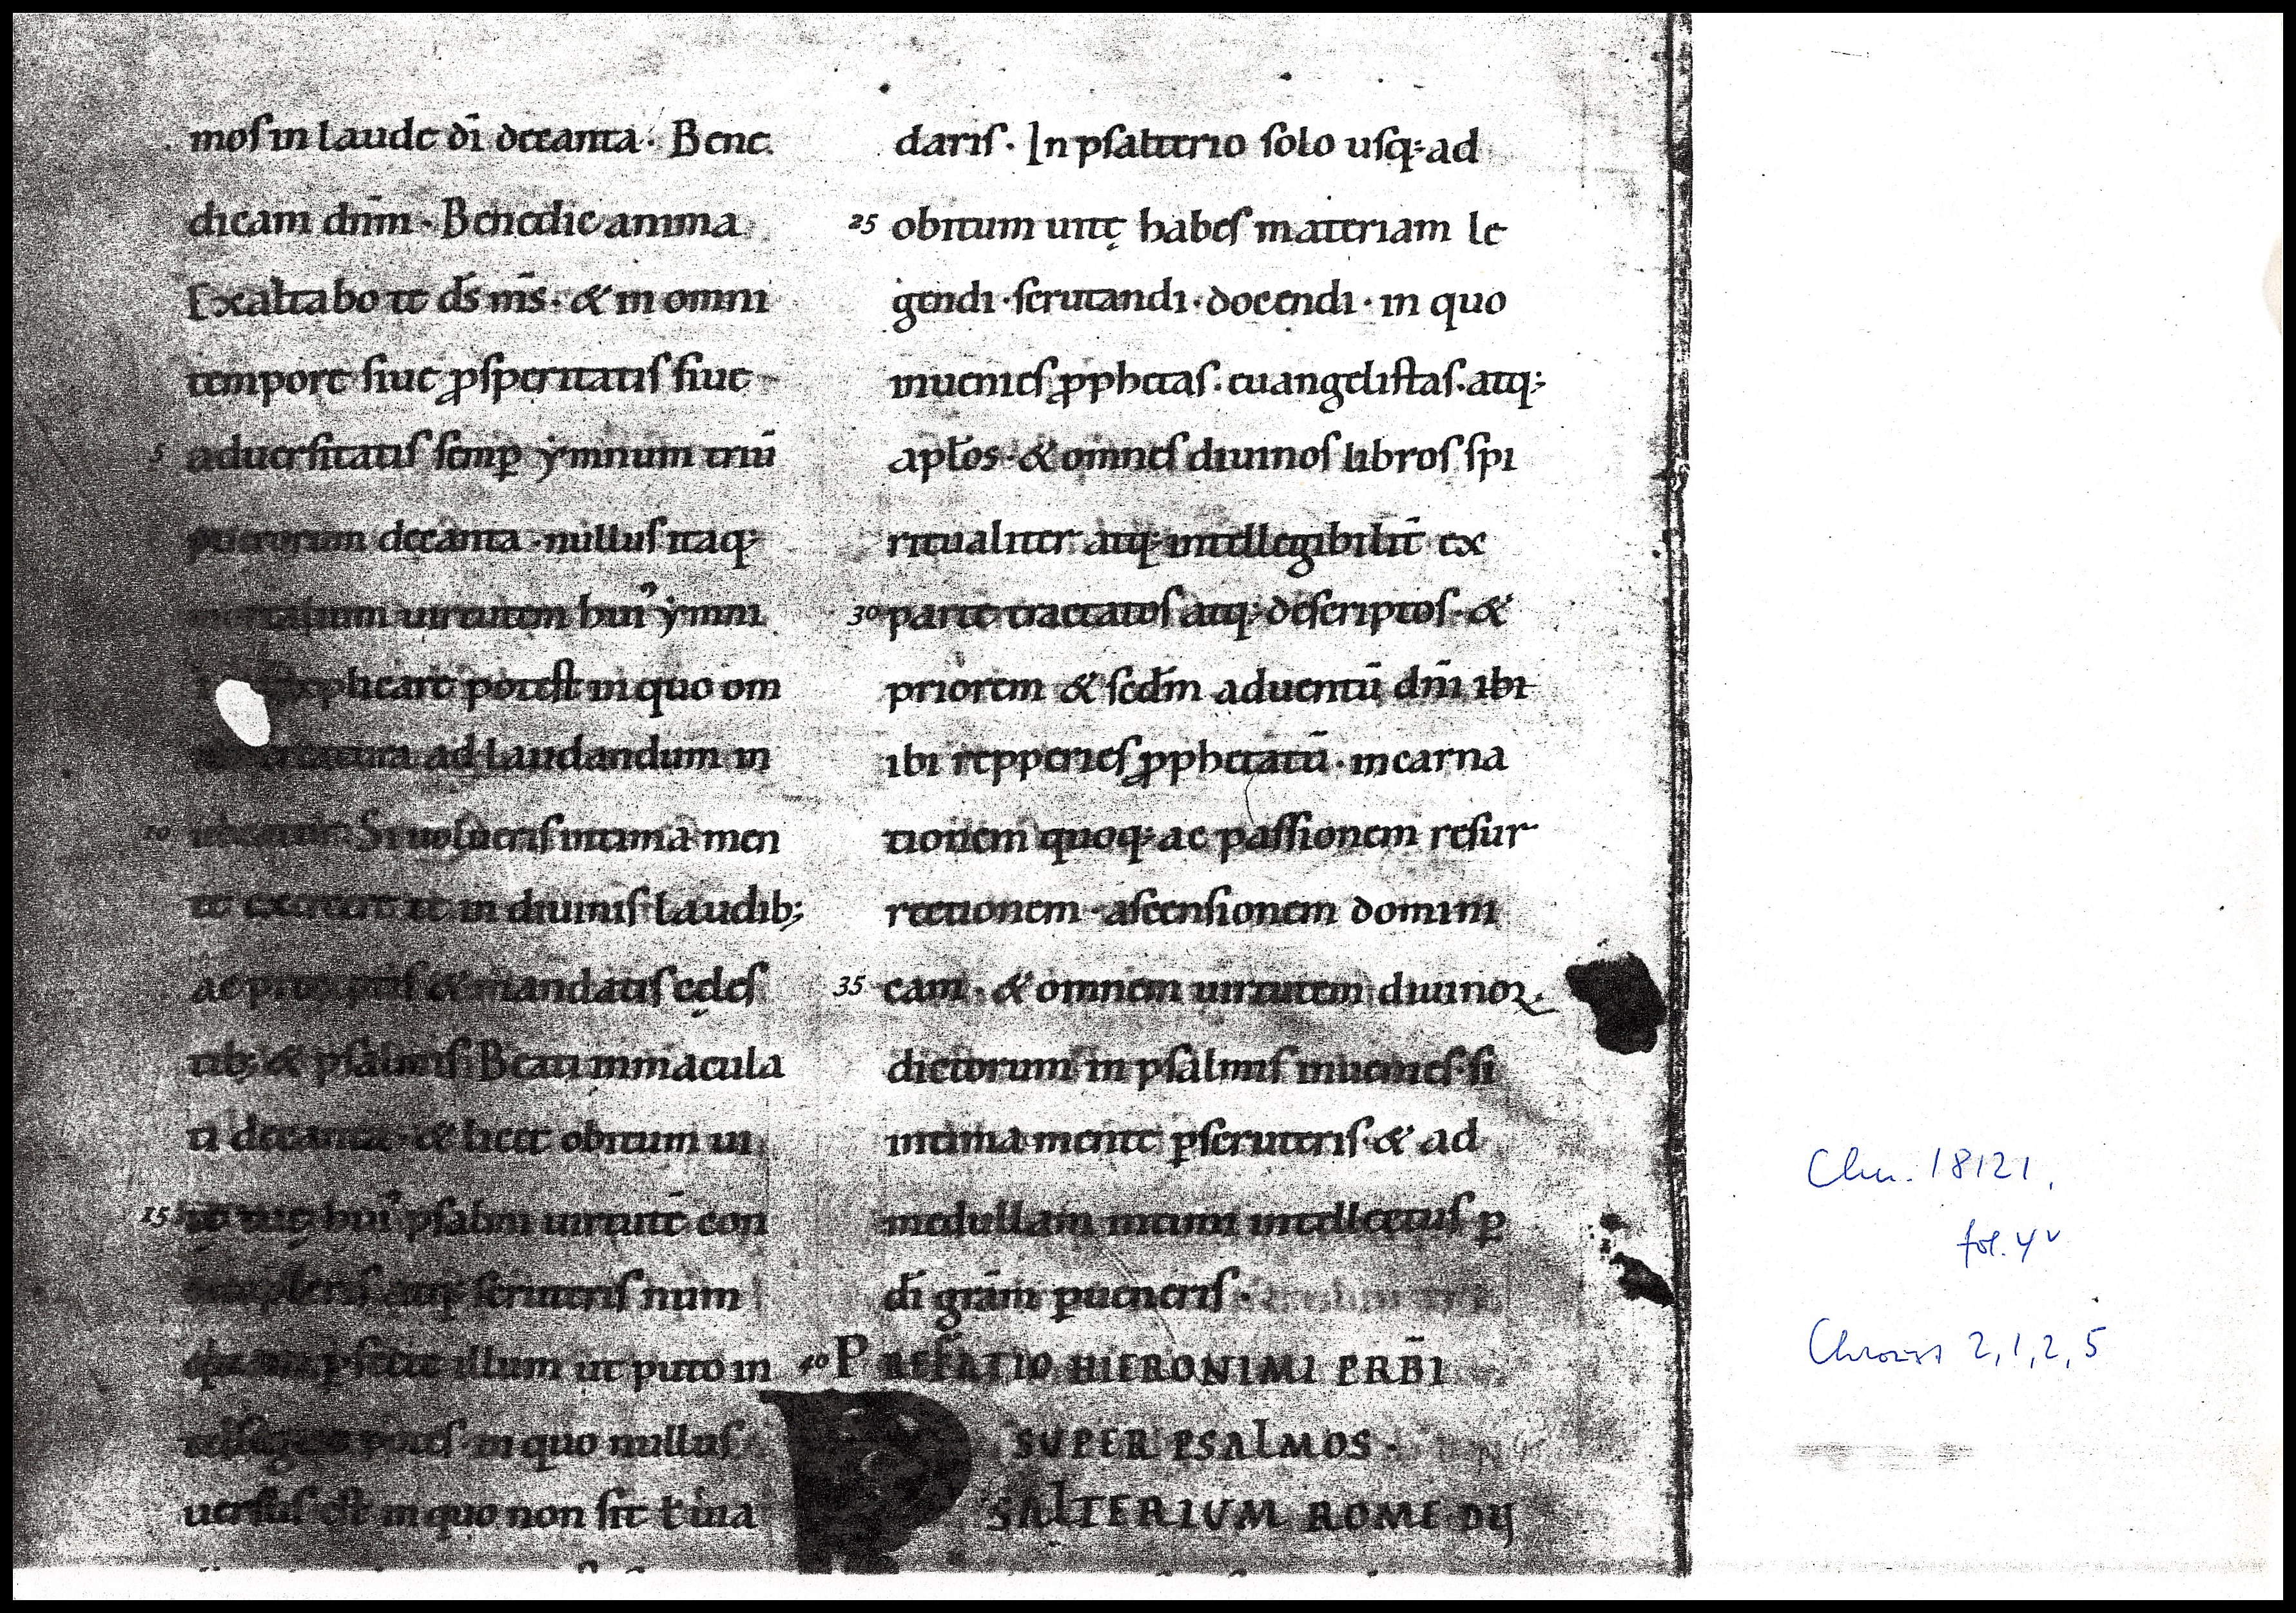 moſ in laude dī decanta · Bene
dicam dnm̄ · Benedic anima
Exaltabo te ds̄ ms̄ · & in omni
tempore ſiue ꝓſperitatiſ ſiue
5 aduerſitatiſ ſemꝑ ẏmnum triū
puerorum decanta · nulluſ itaq:
mortalium uirtutem hui᾽ ẏmni
explicare poteſt in quo om
creatura ad laudandum in
10 Si uolueriſ intima men
te exercere te in diuiniſ laudib;
ac & mandatiſ cęleſ
tib; & pſalmiſ Beati inmacula
ti decanta · & licet obitum ui
15 hui᾽ pſalmi uirtutē con
atq: ſcruteriſ num
illum ut puto in
poteſ · in quo nulluſ
uerſuſ eſt in quo non ſit ł uia
dariſ · In pſalterio ſolo uſq: ad
25 obitum uitę habeſ materiam le
gendi · ſcrutandi · docendi · in quo
inuenieſ ꝓphetas · euangeliſtaſ · atq:
apłos · & omneſ diuinoſ libroſ ſpi
ritualiter atq: intellegibilit̄ ex
30 parte tractatoſ atq: deſcriptoſ · &
priorem & ſcdm̄ aduentū dnī ibi
ibi repperieſ ꝓphetatū · incarna
tionem quoq: ac paſſionem reſur
rectionem · aſcenſionem domini
35 cam · & omnem uirtutem diuinoꝝ
dictorum in pſalmiſ inuenieſ · ſi
intima mente ꝑſcruteriſ · & ad
medullam intimi intellectuſ ꝑ
dī grām ꝑueneriſ ·
40 PREFATIO HIERONIMI PRB̄I
SUPER PSALMOS ·
PSALTERIUM ROME DIJ
Clm. 18121,
fol. 4v
Chroust 2,1,2,5